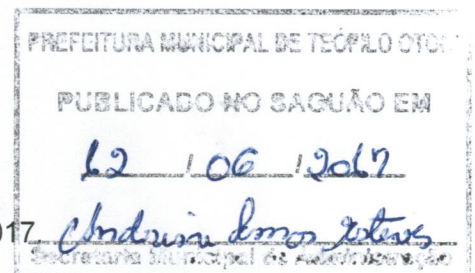 PREFEITURA MUNICIPAL DE TEÓFILO OTO
PUBLICADO NO SAGUÃO EM
12 / 06 / 2017
17
Secretaria Municipal de Administração